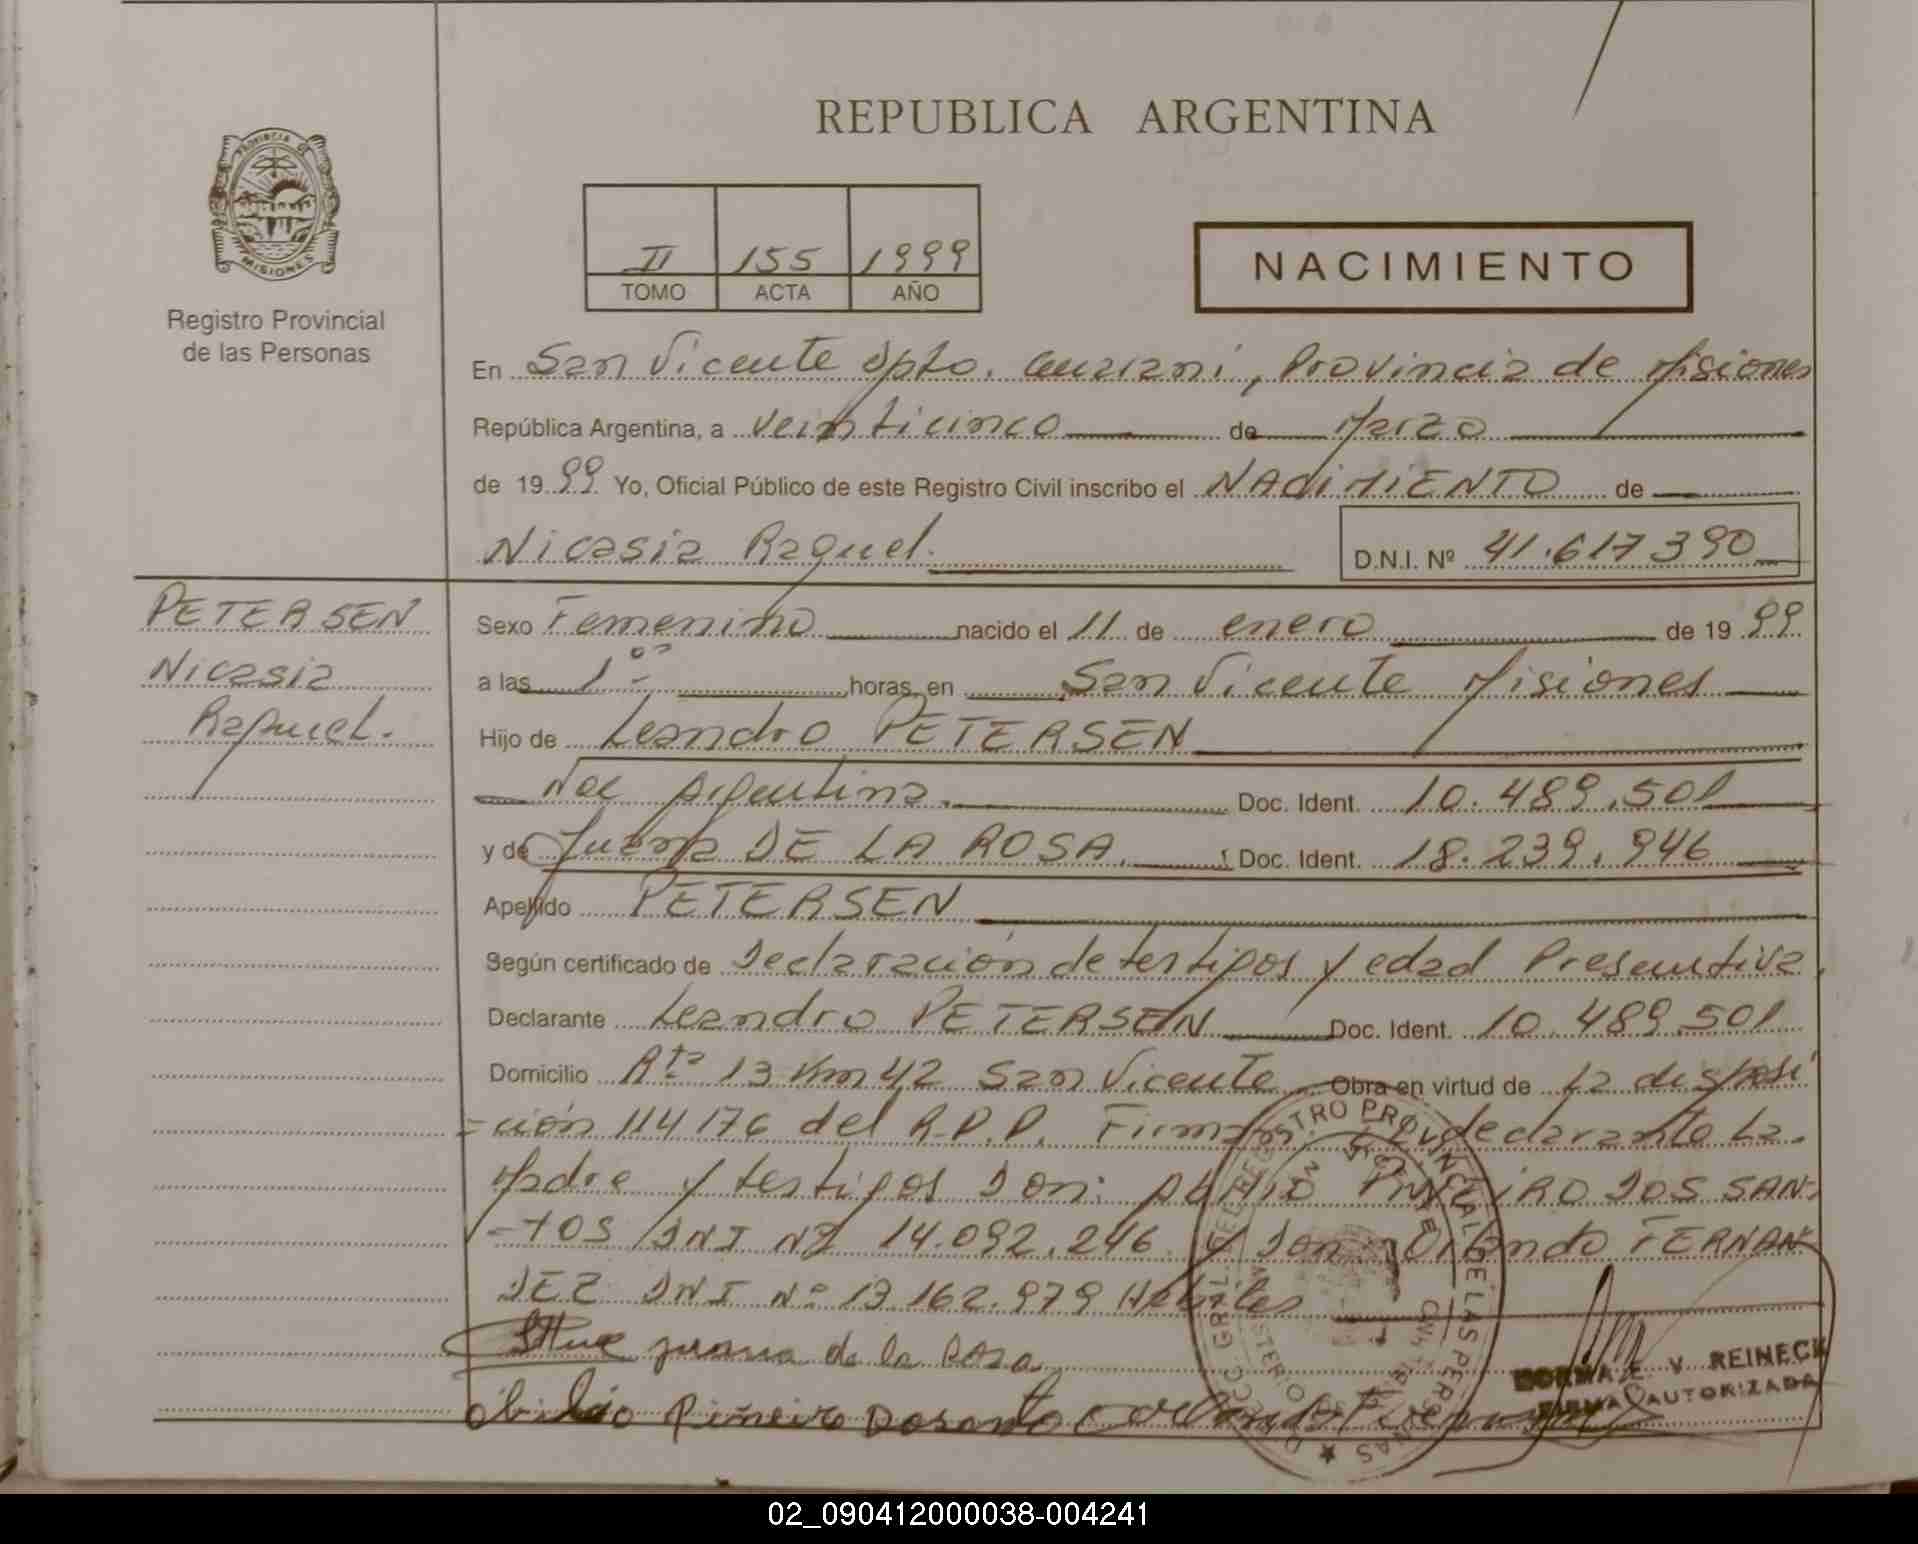 REPUBLICA ARGENTINA
PROVINCIA DE
MISIONES
Registro Provincial
de las Personas
II 155 1999
TOMO ACTA AÑO
NACIMIENTO
En San Vicente Dpto. Guarani, Provincia de Misiones
República Argentina, a veinticinco de Marzo
de 1999 Yo, Oficial Público de este Registro Civil inscribo el NACIMIENTO de
Nicasia Raquel. D.N.I. Nº 41.617390
PETERSEN
Nicasia
Raquel.
Sexo Femenino nacido el 11 de enero de 1999
a las 1 horas, en San Vicente Misiones
Hijo de Leandro PETERSEN
Nac Argentina. Doc. Ident. 10.489.501
y de Juana DE LA ROSA. Doc. Ident. 18.239.946
Apellido PETERSEN
Según certificado de Declaración de testigos y edad Presuntiva.
Declarante Leandro PETERSEN Doc. Ident. 10.489.501
Domicilio Rta 13 Km 42 San Vicente Obra en virtud de La disposi
=ción 114/76 del R.P.P. Firman el declarante La
Madre y testigos Don: PIÑEIRO DOS SAN-
-TOS DNI Nº 14.092.246 y Don Orlando FERNAN
DEZ DNI Nº 13.162.979 Habiles
juana de la Rosa
obidio Piñeiro Dosanto
REINECK
FIRMA AUTORIZADA
REGISTRO PROVINCIAL DE LAS PERSONAS
02_090412000038-004241